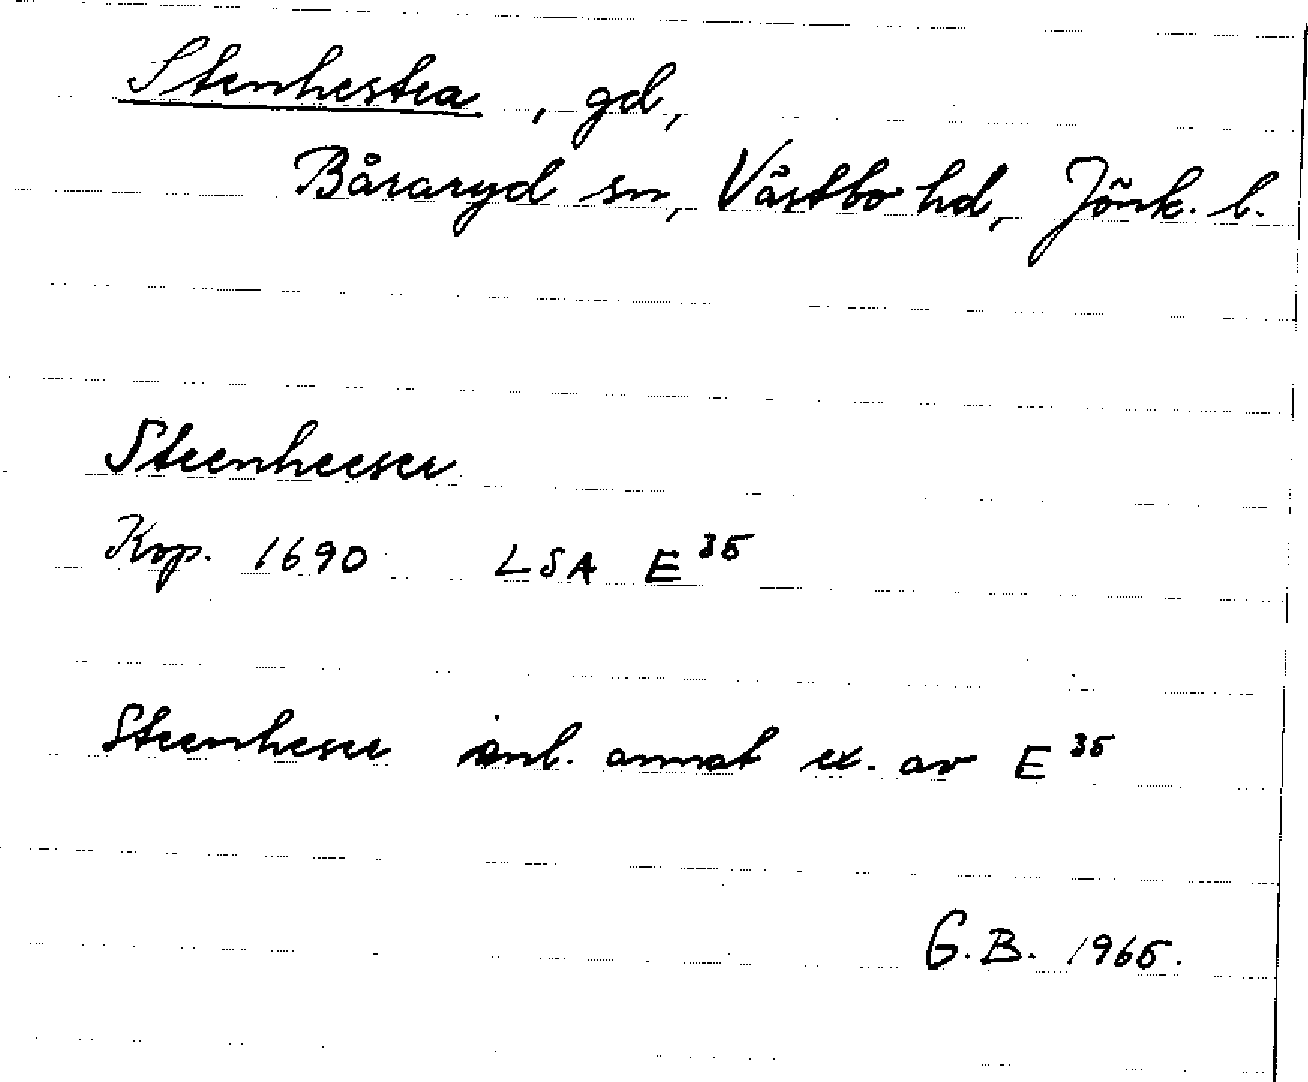 Stenhestra, gd,
Båraryd sn, Västbo hd, Jönk. l.
Steenheser
Kop. 1690 LSA E 35
Steenheser enl. annat ex. av E 35
G.B. 1965.